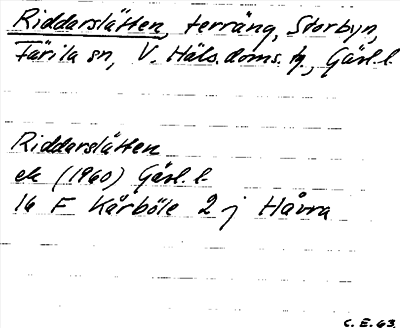 Riddarslåtten, terräng, Storbyn,
Färila sn, V. Häls. doms. tg, Gävl. l.
Riddarslåtten
ek (1960) Gävl. l.
16 F Kårböle 2 j Håvra
C. E. 63.